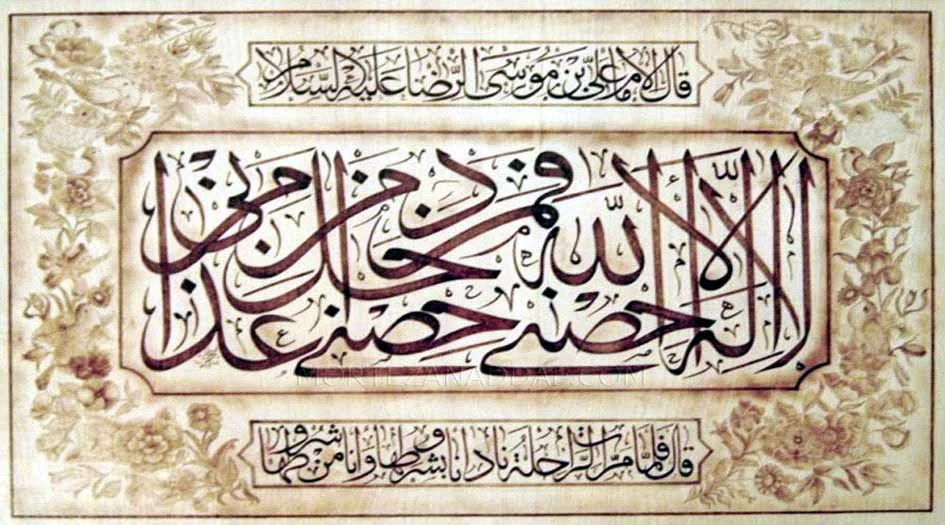 قال الامام علی بن موسی الرضا علیه السلام
لا اله الا الله حصنی فمن دخل حصنی امن من عذابی
قال فلما مرت الراحلة نادانا بشروطها وانا من شروطها
MORTEZANABDAF.COM